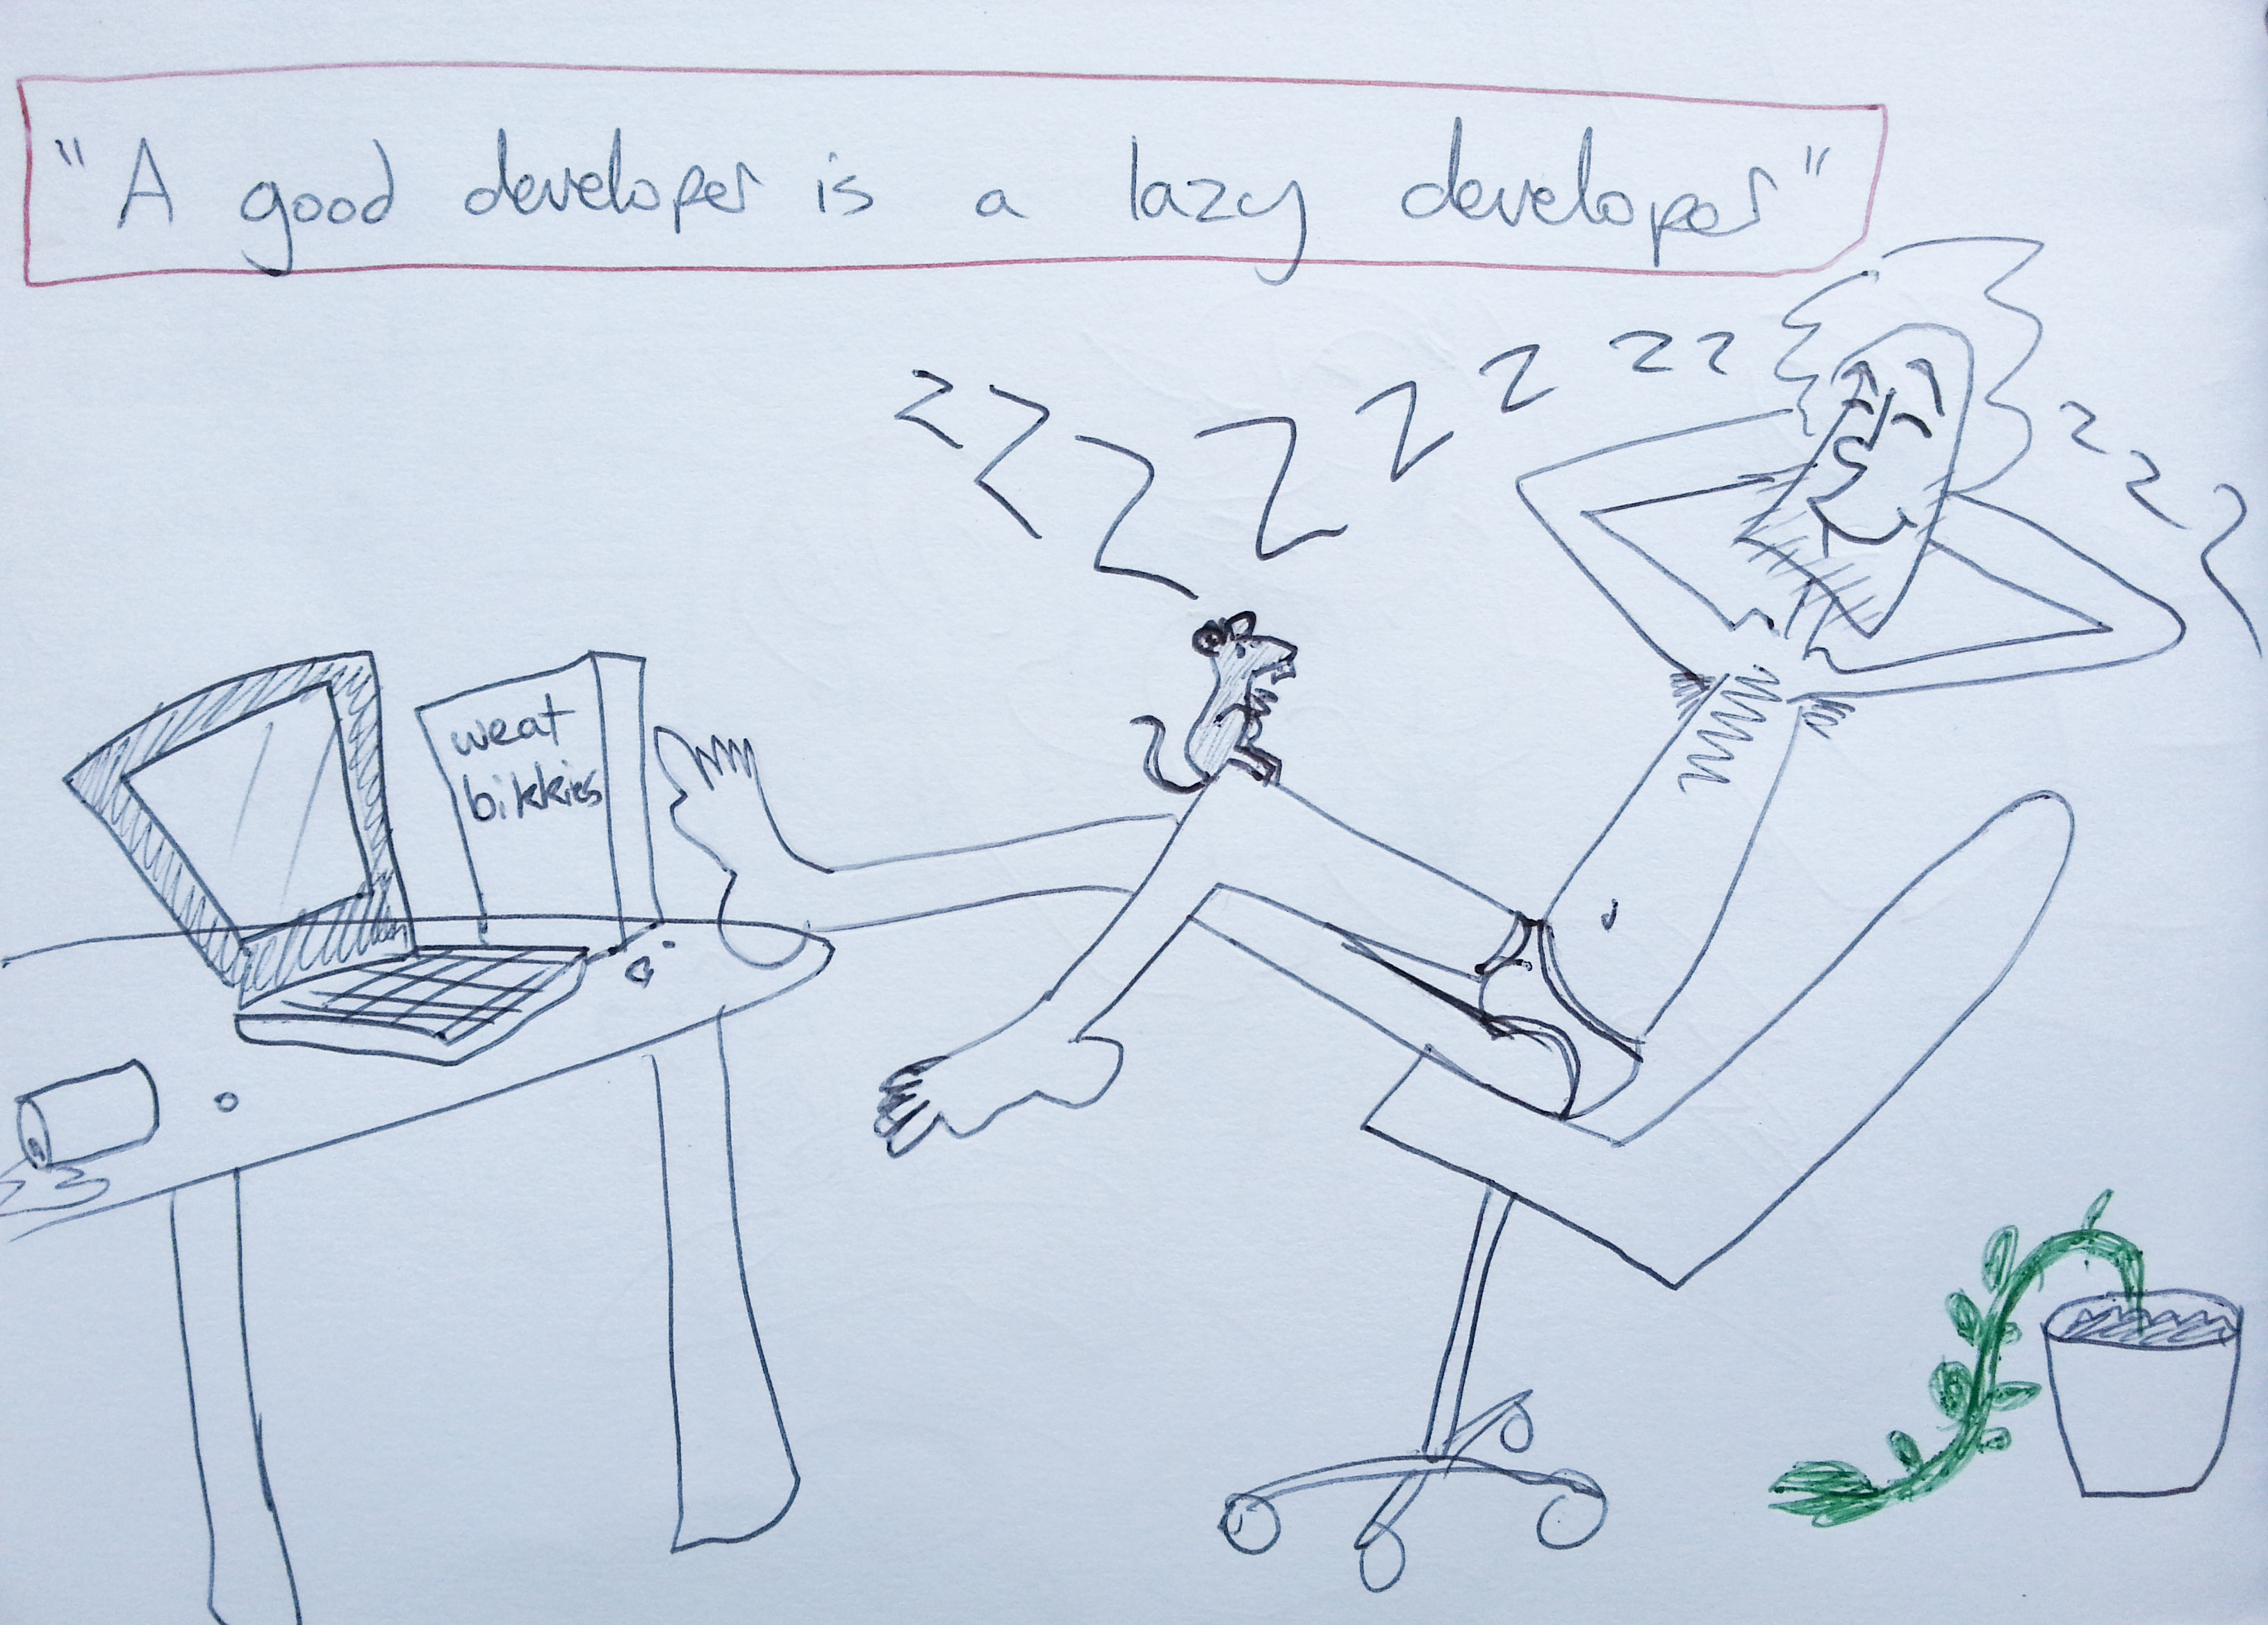 "A good developer is a lazy developer"
zzzzzzzzzzz
weat
bikkies